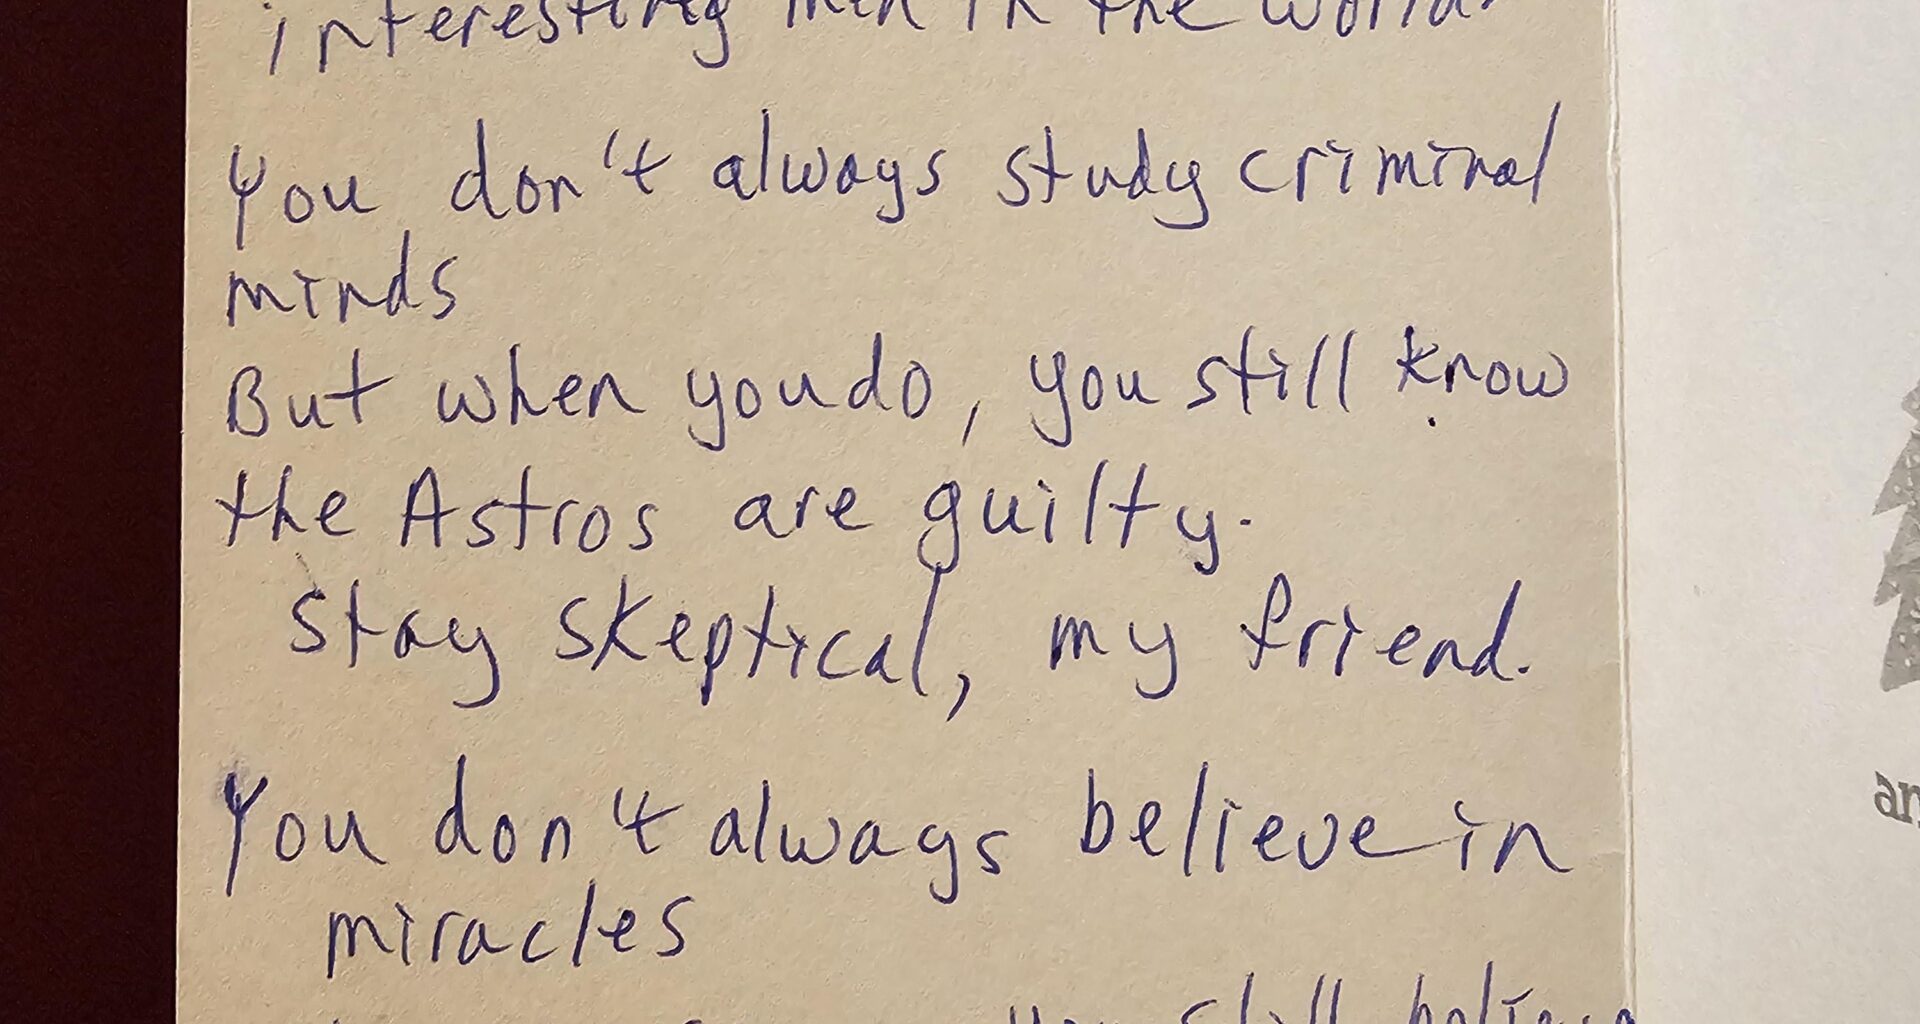 interesting men in the world.
You don't always study criminal
minds
But when you do, you still know
the Astros are guilty.
Stay skeptical, my friend.
You don't always believe in
miracles
you still believe